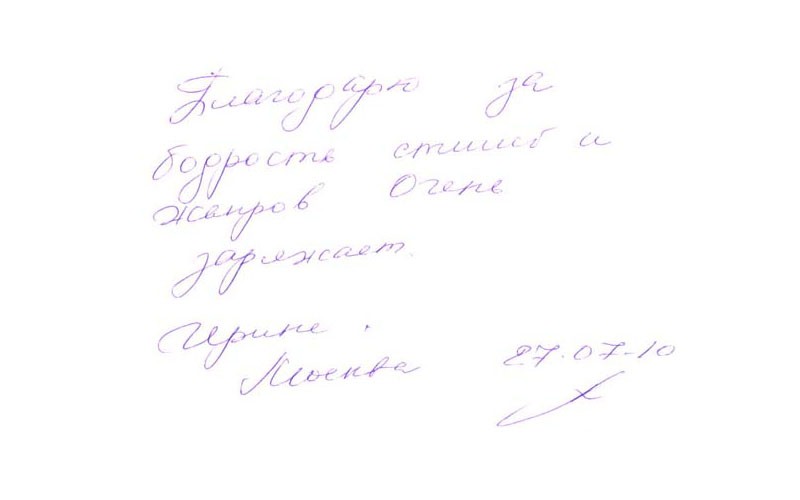 Благодарю за
бодрость стилей и
жанров Очень
заряжает.
Ирина.
Москва 27.07-10